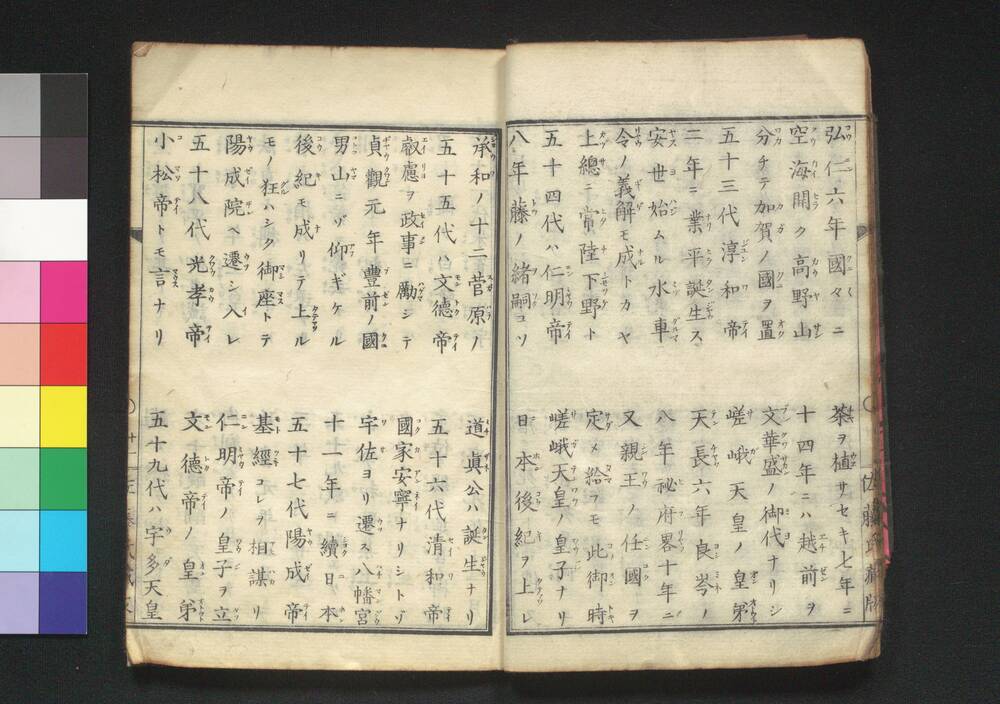 弘仁六年國々ニ
茶ヲ植サセキ七年ニ
空海開ク高野山
十四年ニハ越前ヲ
分チテ加賀ノ國ヲ置
文華盛ノ御代ナリシ
五十三代淳和帝
嵯峨天皇ノ皇弟
二年ニ業平誕生ス
天長六年良岑ノ
安世始ムル水車
八年秘府畧十年ニ
令ノ義解モ成トカヤ
又親王ノ任國ヲ
上總ニ常陸下野ト
定メ給フモ此御時
五十四代ハ仁明帝
嵯峨天皇ノ皇子ナリ
八年藤ノ緒嗣コソ
日本後紀ヲ上レ
承和ノ十二菅原ノ
道眞公ハ誕生ナリ
五十五代ハ文德帝
五十六代清和帝
叡慮ヲ政事ニ勵シテ
國家安寧ナリシトゾ
貞觀元年豐前ノ國
宇佐ヨリ遷ス八幡宮
男山ニゾ仰ギケル
十一年ニ續日本
後紀モ成リテ上ル
五十七代陽成帝
モノ狂ハシク御座トテ
基經コレヲ相謀リ
陽成院ヘ遷シ入レ
仁明帝ノ皇子ヲ立
五十八代光孝帝
文德帝ノ皇弟
小松帝トモ言ナリ
五十九代ハ宇多天皇